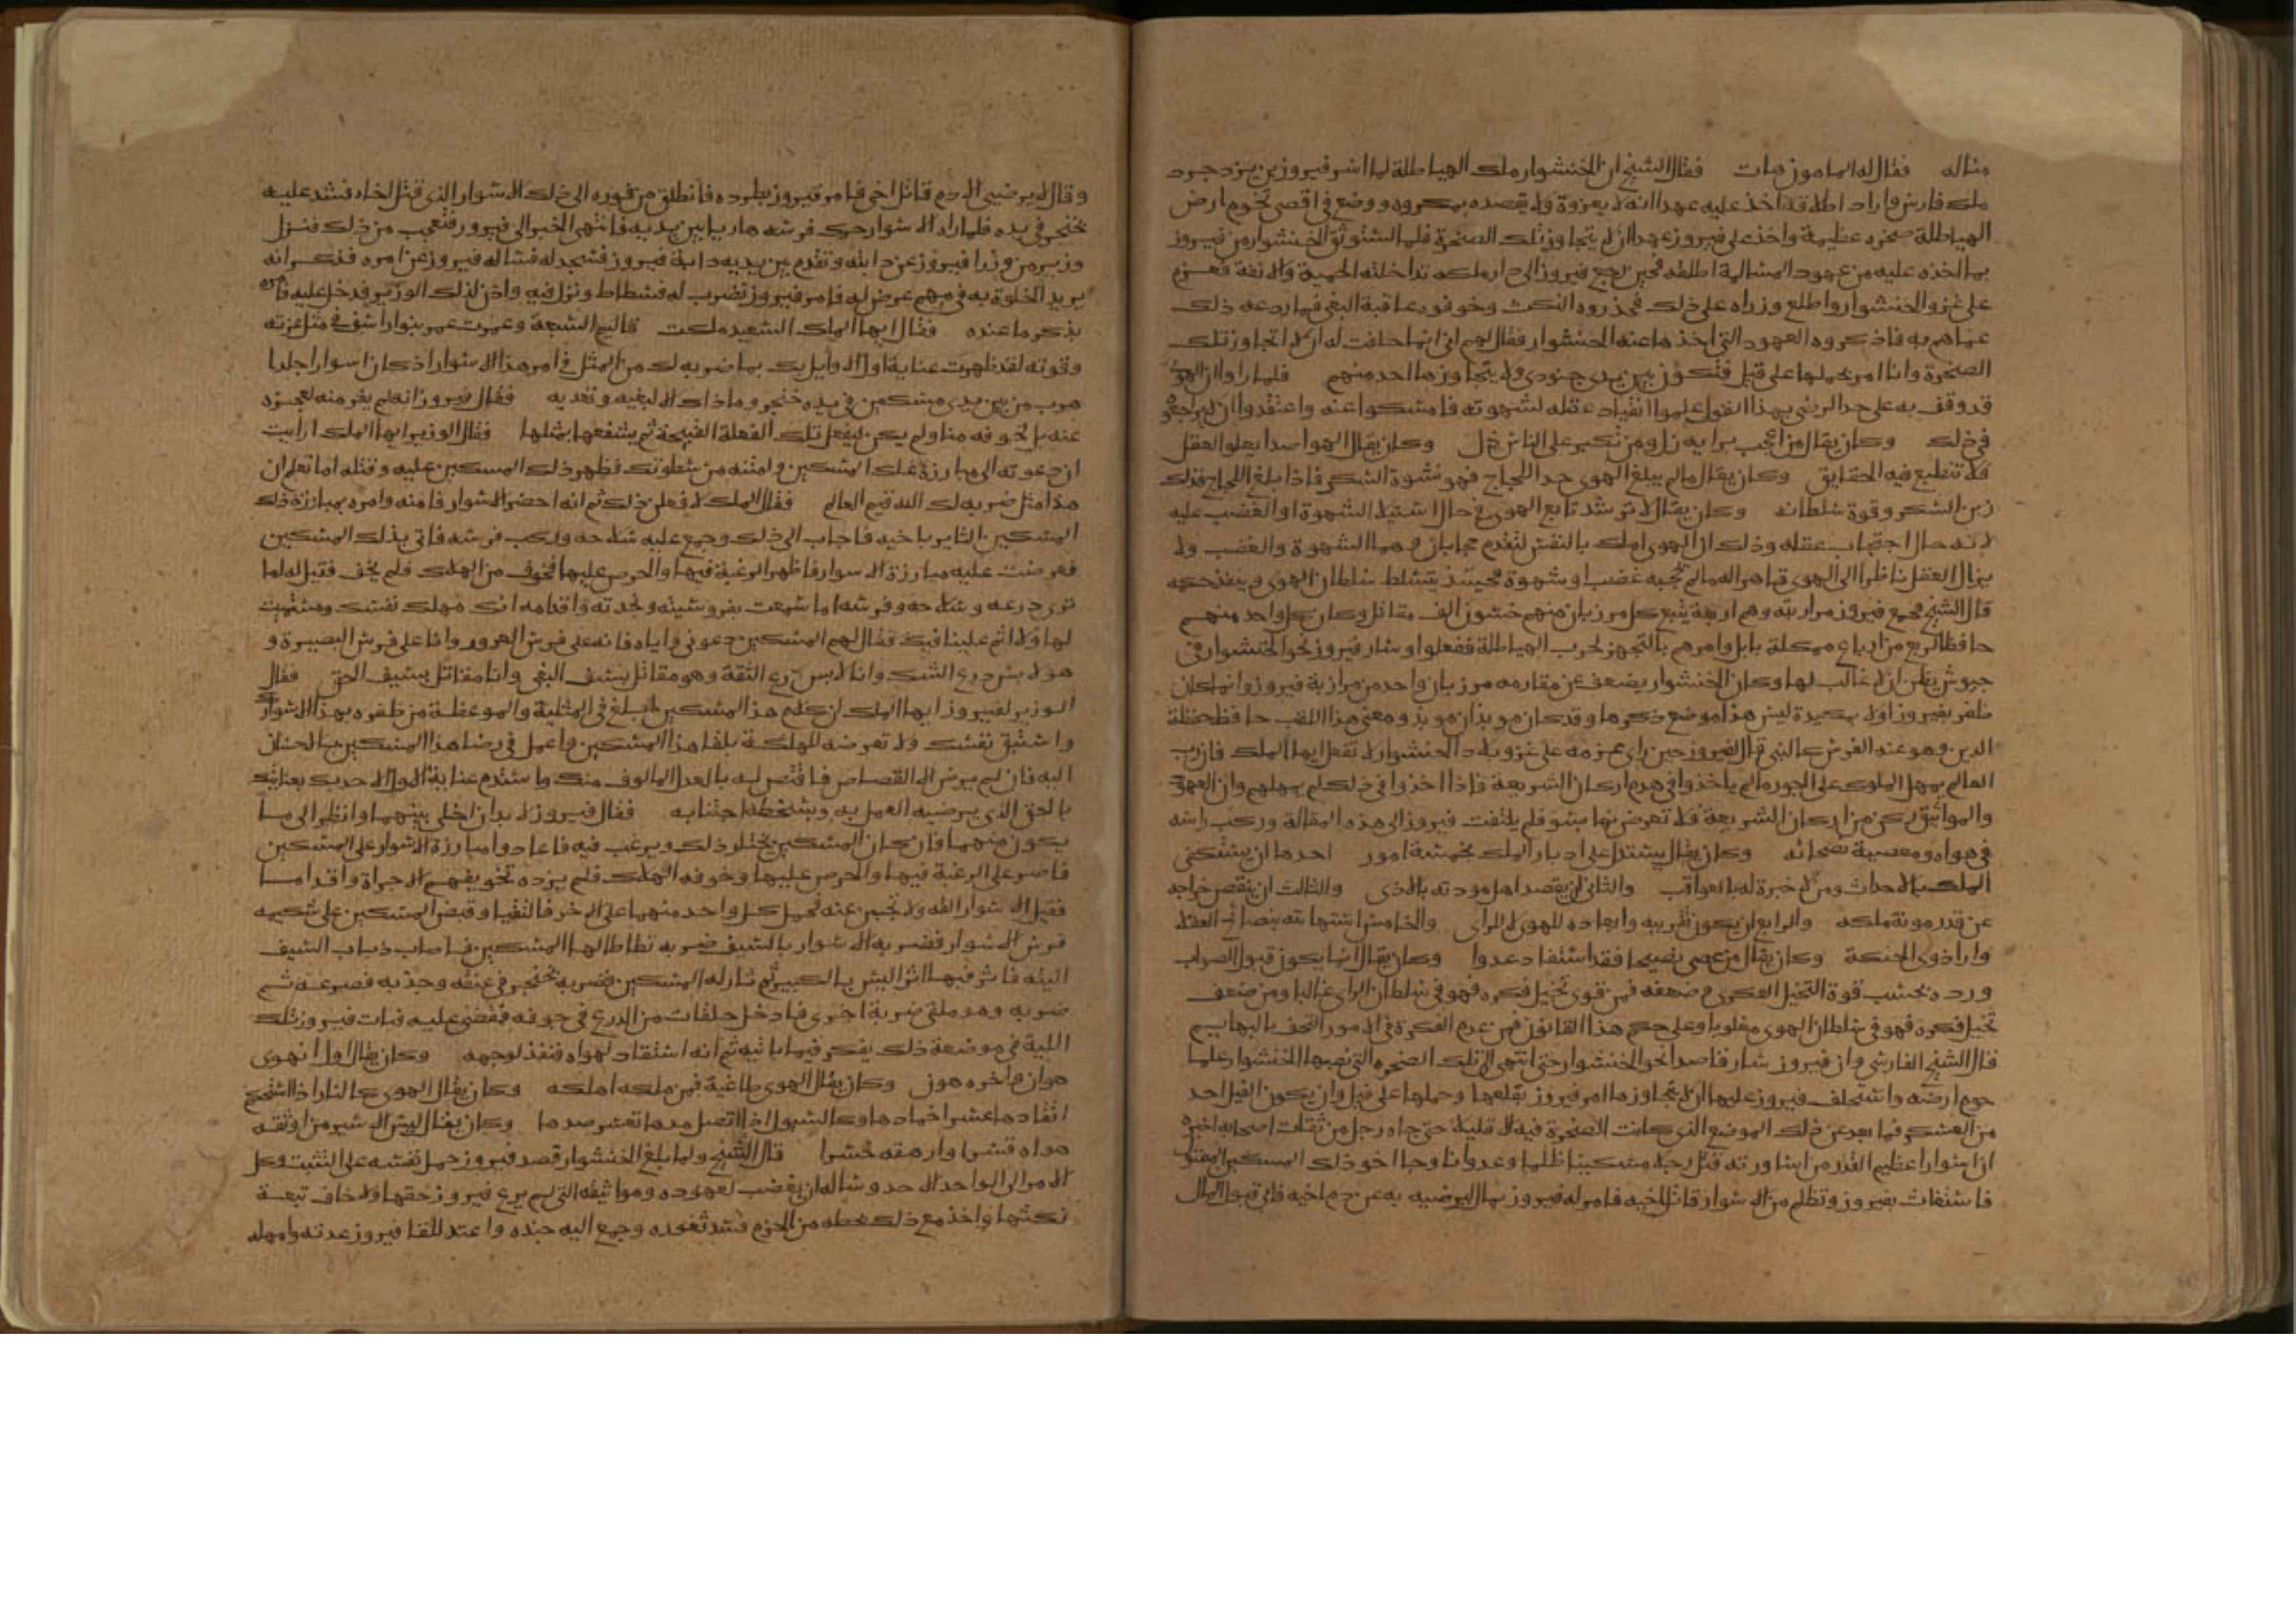 مثاله فقال له المامون هات فقال الشيخ ان الخنشوار ملك الهياطلة لما اسر فيروز بن يزدجرد
ملك فارس واراد اطلاقه اخذ عليه عهدا انه لا يغزوه ولا يقصده بمكروه ووضع في اقصى تخوم ارض
الهياطلة صخره عظيمة واخذ على فيروز عهدا ان لا يتجاوز تلك الصخرة فلما استوثق الخنشوار من فيروز
بما اخذه عليه من عهود المسالمة اطلقه فحين رجع فيروز الى دار ملكه تداخلته الحمية والانفة فعزم
على غزو الخنشوار واطلع وزراه على ذلك فحذروه النكث وخوفوه عاقبة البغي فما ردعه ذلك
عما هم به فاذكروه العهود التي اخذها عنه الخنشوار فقال لهم اني انما حلفت له ان لا اتجاوز تلك
الصخرة وانا امر بحملها على فيل فتكون بين يدي جنودي ولا يتجاوزها احد منهم فلما راوا ان الهوى
قد وقف به على حد الرضى بهذا القول علموا انقياد عقله لشهوته فامسكوا عنه واعتقدوا ان لا يراجعوه
في ذلك وكان يقال من اعجب برايه زل ومن تكبر على الناس ذل وكان يقال الهوا صدا يعلو العقل
فلا تنطبع فيه الحقايق وكان يقال ما لم يبلغ الهوى حد اللجاج فهو نشوة السكر فاذا بلغ اللجاج فذلك
زين السكر وقوة سلطانه وكان يقال لا ترشد تابع الهوى في حال استيلا الشهوة او الغضب عليه
لانه حال احتجاب عقله وذلك ان الهوى املك بالنفس لتقدم حجابان وهما الشهوة والغضب ولا
يزال العقل ناظرا الى الهوى قاهرا له ما لم يحجبه غضب او شهوة فحينئذ يتسلط سلطان الهوى وينفذ حكمه
قال الشيخ فجمع فيروز مرازبته وهم اربعة يتبع كل مرزبان منهم خمسون الف مقاتل وكان كل واحد منهم
حافظا لربع من ارباع مملكة بابل وامرهم بالتجهز لحرب الهياطلة ففعلوا وسار فيروز نحو الخنشوار في
جيوش يظن ان لا غالب لها وكان الخنشوار يضعف عن مقاومه مرزبان واحد من مرازبة فيروز وانما كان
ظفر بفيروز اولا بمكيدة ليس هذا موضع ذكرها وقد كان موبذان موبذ ومعنى هذا اللقب حافظ حفظة
الدين وهو عند الفرس كالنبي قال لفيروز حين راى عزمه على غزو بلاد الخنشوار لا تفعل ايها الملك فان رب
العالم يمهل الملوك على الجور ما لم ياخذوا في هدم اركان الشريعة فاذا اخذوا في ذلك لم يمهلهم وان العهود
والمواثيق ركن من اركان الشريعة فلا تعرض لها بسو فلم يلتفت فيروز الى هذه المقالة وركب راسه
في هواه ومعصية نصحائه وكان يقال يستدل على ادبار الملك بخمسة امور احدها ان يستكفي
الملك بالاحداث ومن لا خبرة له بالعواقب والثاني ان يقصد اهل مودته بالاذى والثالث ان ينقص خراجه
عن قدر مونة ملكه والرابع ان يكون تقريبه وابعاده للهوى لا للراى والخامس استهانته بنصايح العقلا
وارا ذوي الحنكة وكان يقال من عصى نصيحا فقد استفاد عدوا وكان يقال انما يكون قبول الصواب
ورده بحسب قوة التخيل الفكري وضعفه فمن قوى تخيل فكره فهو في سلطان الراى غالبا ومن ضعف
تخيل فكره فهو في سلطان الهوى مغلوبا وعلى حكم هذا القانون فمن عدم الفكرة في الامور التحق بالبهايم
قال الشيخ الفارسي وان فيروز سار قاصدا نحو الخنشوار حتى انتهى الى تلك الصخره التي نصبها الخنشوار علما
حوم ارضه واستحلف فيروز عليها ان لا يتجاوزها امر فيروز بقلعها وحملها على فيل وان يكون الفيل احد
من العسكر فما بعد عن ذلك الموضع الذي كانت الصخرة فيه الا قليلا حتى جاه رجل من ثقات اصحابه اخبره
ان اسوارا عظيم القدر من اساورته قتل رجلا مسكينا ظلما وعدوانا وجا اخو ذلك المسكين المقتول
فاستغاث بفيروز وتظلم من الاسوار قاتل اخيه فامر له فيروز بمال ليرضيه به عن دم اخيه فابى قبول المال
وقال لا يرضيني الا دم قاتل اخي فامر فيروز بطرده فانطلق من فوره الى ذلك الاسوار الذي قتل اخاه فشد عليه
بخنجر في يده فلما راه الاسوار حرك فرسه هاربا بين يديه فانتهى الخبر الى فيروز فتعجب من ذلك فنزل
وزير من وزرا فيروز عن دابته وتقدم بين يديه دابة فيروز فسجد له فساله فيروز عن امره فذكر انه
يريد الخلوة به في مهم عرض له فامر فيروز فضرب له فسطاط ونزل فيه واذن لذلك الوزير فدخل عليه فامره
بذكر ما عنده فقال ايها الملك السعيد ملكت قاليم السبعة وعمرت عمر بنوراسف في مثل عزته
وقوته لقد ظهرت عناية اول الاوايل بك بما ضربه لك من المثل في امر هذا الاسوار اذ كان اسوارا جلدا
هرب من بين يدي مسكين في يده خنجر وما ذاك الا لبغيه وتعديه فقال فيروز انه لم يفر منه لعجزه
عنه بل لخوفه منا ولم يكن ليفعل تلك الفعلة القبيحة ثم يشفعها بمثلها فقال الوزير ايها الملك ارايت
ان دعوته الى مبارزة ذلك المسكين وامنته من سطوتك فظهر ذلك المسكين عليه وقتله اما تعلم ان
هذا مثل ضربه لك الله قيم العالم فقال الملك لافعلن ذلك ثم انه احضر الاسوار فامنه وامره بمبارزة ذلك
المسكين الثاير باخيه فاجاب الى ذلك وجمع عليه سلاحه وركب فرسه فاتى بذلك المسكين
فعرضت عليه مبارزة الاسوار فاظهر الرغبة فيها والحرص عليها فخوف من الهلاك فلم يخف فقيل له اما
ترى درعه وسلاحه وفرسه اما سمعت بفروسيته ونجدته واقدامه انك مهلك نفسك ومستميت
لها ولا اثم علينا فيك فقال لهم المسكين دعوني واياه فانه على فرس الغرور وانا على فرس البصيرة و
هو لابس درع الشك وانا لابس درع الثقة وهو مقاتل بسيف البغي وانا مقاتل بسيف الحق فقال
الوزير لفيروز ايها الملك ان كلام هذا المسكين ابلغ في المثلية والموعظة من ظفره بهذا الاسوار
واستبق نفسك ولا تعرضه للهلكة بلقا هذا المسكين واعمل في رضا هذا المسكين بالاحسان
اليه فان لم يرض الا القصاص فاقتص له بالعدل المالوف منك واستدم عناية الاول الاحد بك بعنايتك
بالحق الذي يرضيه العمل به ويسخطه اجتنابه فقال فيروز لا بد ان اخلى بينهما وانظر الى ما
يكون منهما فان كان المسكين يختار ذلك ويرغب فيه فاعادوا مبارزة الاسوار على المسكين
فاصر على الرغبة فيها والحرص عليها وخوفه الهلاك فلم يزده تخويفهم الا جراة واقداما
فقيل للاسوار القه ولا تجبن عنه فحمل كل واحد منهما على الاخر فالتقيا وقبض المسكين على شكيمه
فرس الاسوار فضربه الاسوار بالسيف ضربه تطاطا لها المسكين فاصاب ذباب السيف
اليته فاثر فيها اثرا ليس بالكبير ثم ثار له المسكين فضربه بخنجر في عنقه وجذبه فصرعه ثم
ضربه وهو ملقى ضربة اخرى فادخل حلقات من الدرع في جوفه فقضى عليه فبات فيروز تلك
الليلة في موضعه ذلك يفكر فيما ياتيه ثم انه استقاد لهواه فنفذ لوجهه وكان يقال اول الهوى
هوان واخره هون وكان يقال الهوى طاغية فمن ملكه اهلكه وكان يقال الهوى كالنار اذا استحكم
اتقادها عسر اخمادها وكالسيول اذا اتصل مدها تعسر صدها وكان يقال ليس الاسير من اوثقه
عداه قسرا وارهقه خسرا قال الشيخ ولما بلغ الخنشوار قصد فيروز حمل نفسه على التثبت ووكل
الامر الى الواحد الاحد وساله ان يغضب لعهوده ومواثيقه التي لم يرع فيروز حقها ولا خاف تبعة
نكثها واخذ مع ذلك بحظه من الحزم فسد ثغوره وجمع اليه جنده واعتد للقا فيروز عدته وامهله